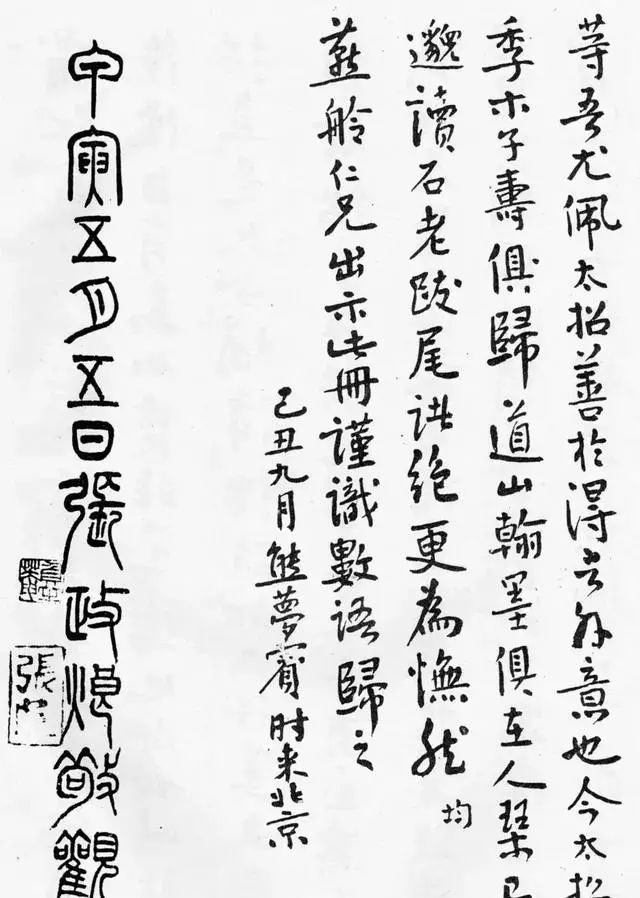 等吾尤佩太招善於得言外意也今太招
季木子壽俱歸道山翰墨俱在人琴已
邈讀石老跋尾詼絶更為憮然
均
燕舲仁兄出示此冊謹識數語歸之
己丑九月熊夢賓時來北京
甲寅五月五日張政烺敬觀